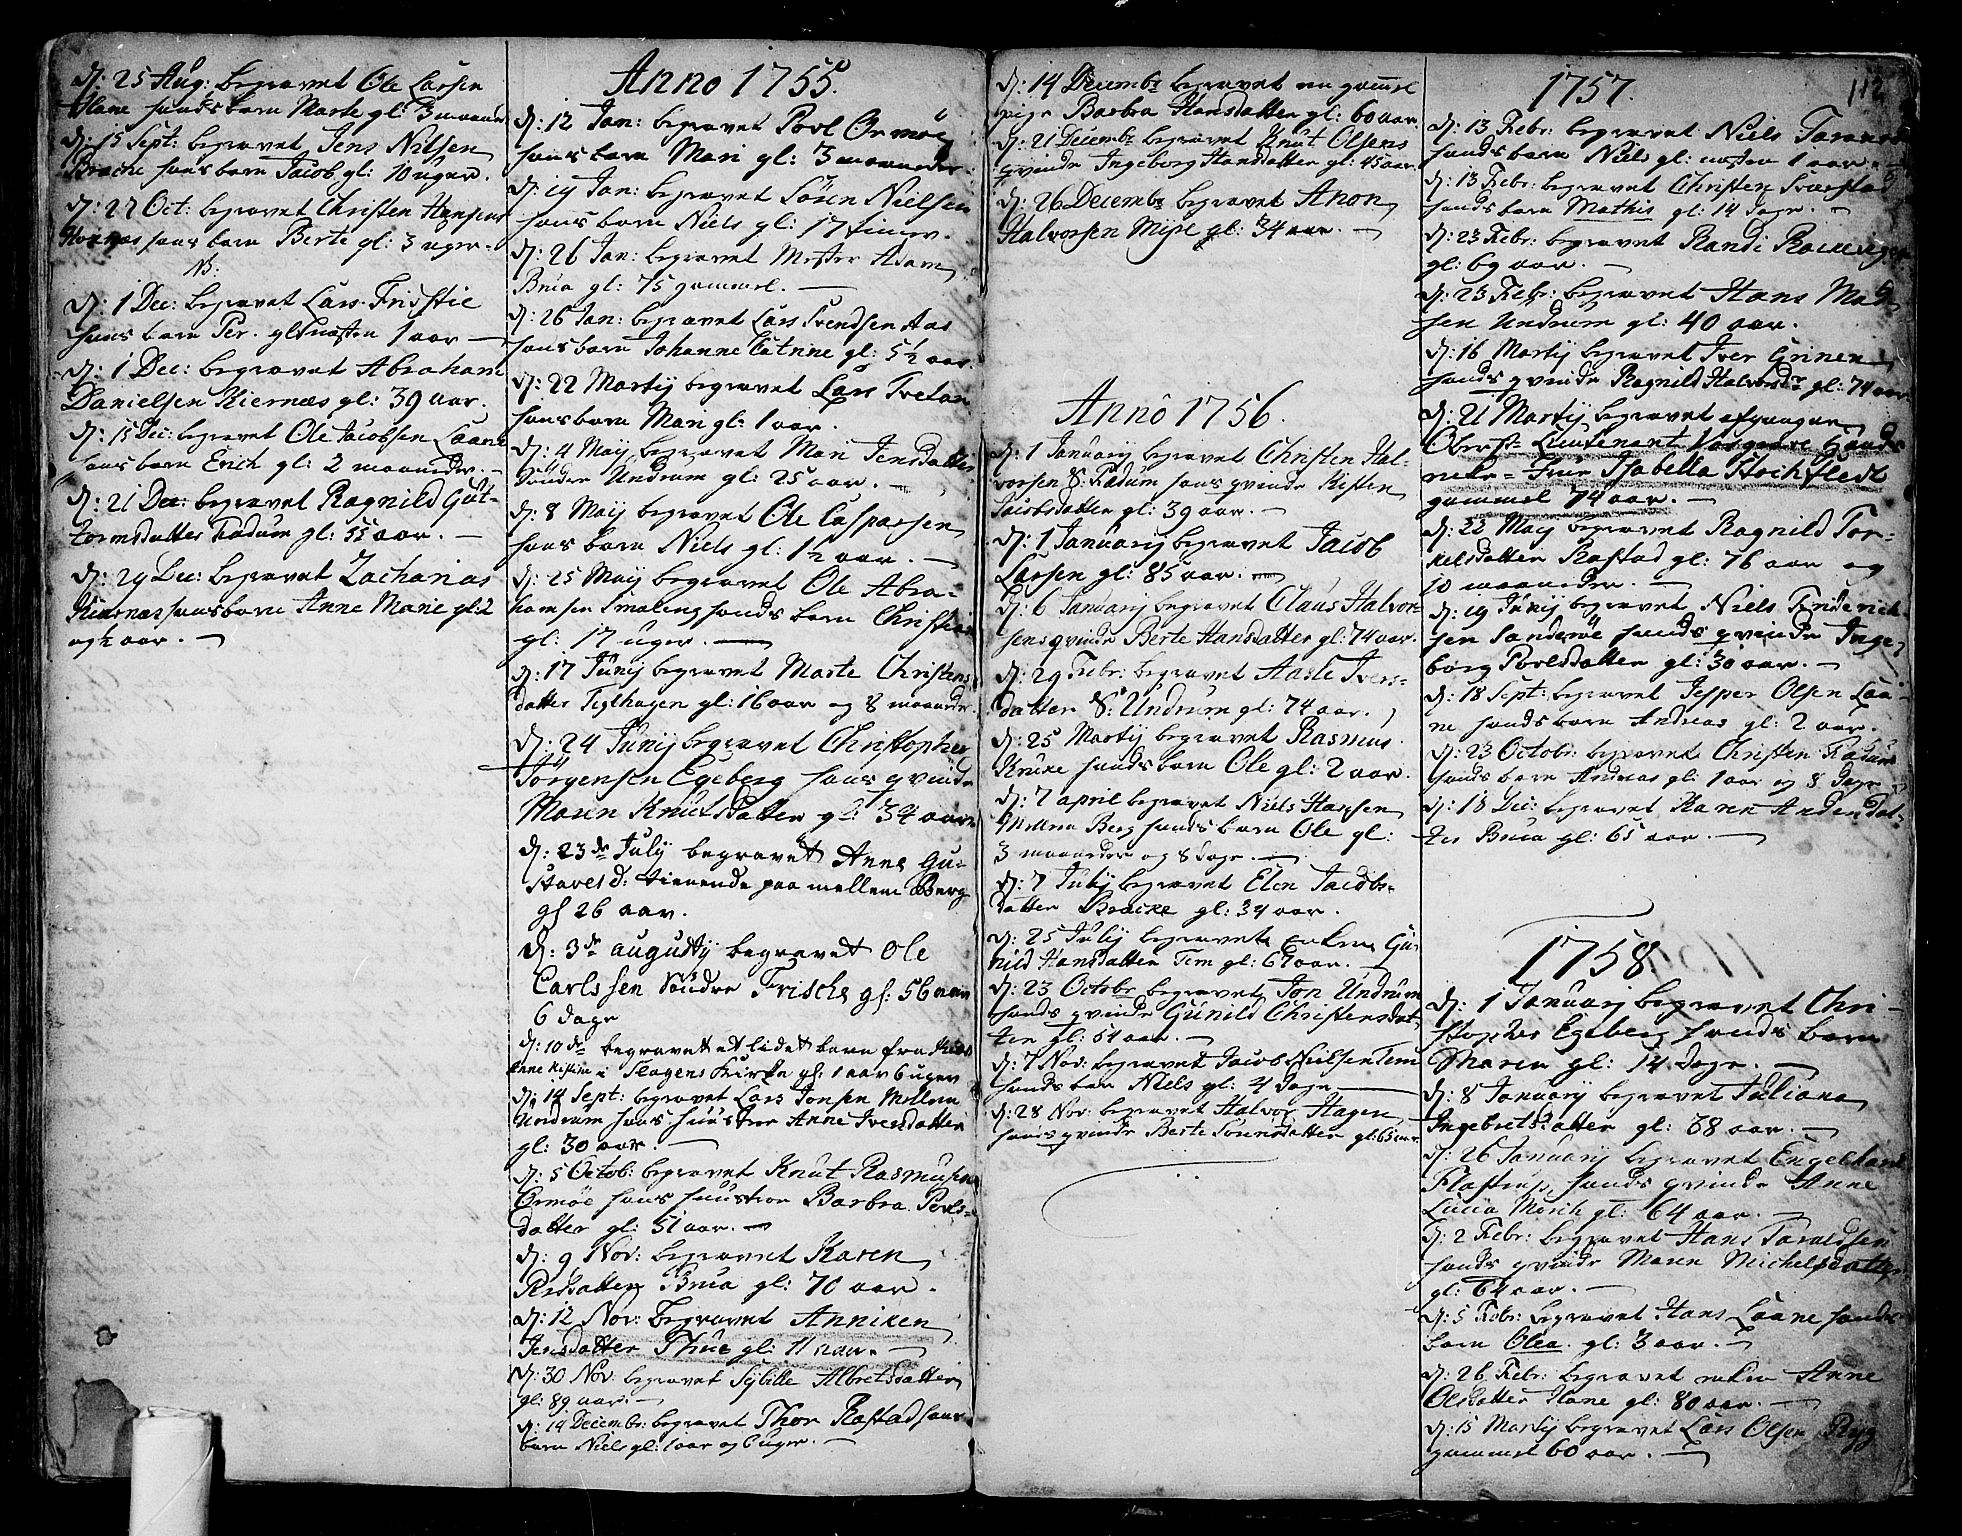 D: 25 Aug: begravet Ole Larsen
Hane hands barn Marte gl: 3 maaned
D: 15 Sept: begravet Jens Nilsen
Bracke hans barn Jacob gl: 10 uger.
D: 27 Oct: begravet Christen Hansens
hans barn Berte gl: 3 uger
NB.
D: 1 Dec: begravet Lars Fristie
hans barn Per. gl næsten 1 aar
D: 1 Dec: begravet Abraham
Danielsen Kiernæs gl: 39 aar.
D: 15 Dec: begravet Ole Jacobsen Laane
hans barn Erich gl: 2 maaneder.
D: 21 Dec: begravet Ragnild Gut-
tormsdatter Fadum gl: 55 aar.
D: 29 Dec: begravet Zacharias
Kiernæs hans barn Anne Marie gl: 2
og ½ aar.
Anno 1755.
D: 12 Jan: begravet Povl Ormöe
hans barn Mari gl: 3 maaneder.
D: 19 Jan: begravet Sören Nielsen
hans barn Niels gl: 17 timer.
D: 26 Jan: begravet Mester Adam
Brua gl: 75 gammel.
D: 26 Jan: begravet Lars Svendsen Aas
hans barn Johanne Catrine gl: 5½ aar.
D: 22 Martij begravet Lars Tvetan
hans barn Mari gl: 1 aar.
D: 4 Maij begravet Mari Jensdatter
Sönder Undrum gl: 25 aar.
D: 8 Maij begravet Ole Caspersen
hans barn Niels gl: 1½ aar.
D: 25 Maij begravet Ole Abra-
hamsen Smaleng hands barn Christian
gl: 17 uger.
D: 17 Junij begravet Marte Christens
datter Teglhagen gl: 16 aar og 8 maaneder
D: 24 Junij begravet Christopher
Jörgensen Egeberg hans qvinde
Maren Knutsdatter gl: 34 aar
D: 23de July begravet Anne Gu-
stavesd: tienende paa mellem Berg
gl 26 aar.
D: 3de augustij begravet Ole
Carlssen Söndre Frische gl: 56 aar
6 dage
D: 10de begravet et lidet barn fra
Anne Kistine i Slagens Kirke gl: 1 aar 6 uger
D: 14 Sept: begravet Lars Jonsen Mellem
Undrum hans hustroe Anne Iversdatter
gl: 30 aar.
D: 5 Octob: begravet Knut Rasmusen
Ormöe hans hustroe Barbra Povls-
datter gl: 51 aar.
D: 9 Nov: begravet Karen
Brua gl: 70 aar.
D: 12 Nov: begravet Anniken
Jensdatter Thue gl: 11 aar.
D: 30 Nov: begravet Sybille Albretsdatter
gl: 89 aar.
D: 14 Decembr: begravet Thor Rastad hans
barn Niels gl: 1 aar og 6 uger.
D: 14 Decembr begravet en gammel
pige Barbra Hansdatter gl: 60 aar
D: 21 Decembr begravet Knut Olsens
qvinde Ingeborg Hansdatter gl: 45 aar.
D: 26 Decembr begravet Anon
Halvorsen Miøe gl: 34 aar.
Anno 1756.
D: 1 Januarij begravet Christen Hal-
vorsen S: Fadum hans qvinde Kisten
Jacobsdatter gl: 39 aar.
D: 1 Januarij begravet Jacob
Larsen gl: 85 aar.
D: 6 Januarij begravet Claus Halvor-
sens qvinde Berte Hansdatter gl: 74 aar.
D: 29 Febr: begravet Aasle Ivers-
datter S: Undrum gl: 74 aar.
D: 25 Martij begravet Rasmus
Kruke hands barn Ole gl: 2 aar.
D: 7 april begravet Niels Hansen
Mellem Berg hands barn Ole gl:
3 maaneder og 8 dage.
D: 7 Julij begravet Elen Jacobs-
datter Bracke gl: 34 aar.
D: 25 Julij begravet enken Gu-
nild Hansdatter Tem gl: 67 aar.
D: 23 Octobr begravet Jon Undrum
hands qvinde Gunild Christensdat-
ter gl: 54 aar.
D: 7 Nov: begravet Jacob Nielsen Tem
hands barn Niels gl: 4 dage
D: 28 Nov: begravet Halvor Hagen
hands qvinde Berte Sörensdatter gl: 65 aar
112
1757.
D: 13 Febr: begravet Niels
hands barn Niels gl: næsten 1 aar.
D: 13 Febr: begravet Christen Svarstad
hands barn Mathis gl: 14 dage.
D: 23 Febr: begravet Randi
gl: 69 aar.
D: 23 Febr: begravet Hans Mad-
sen Undrum gl: 40 aar.
D: 16 Martij begravet Iver Grinen
hands qvinde Ragnild Halvorsdr gl: 74 aar
D: 21 Martij begravet afgangen
Oberst-Lieutenant
Frue Isabella Stockfledt
gammel 74 aar.
D: 22 Maij begravet Ragnild Tor-
kelsdatter Rastad gl: 76 aar og
10 maaneder.
D: 19 Junij begravet Niels Friderich-
sen Sanderöe hands qvinde Inge-
borg Povlsdatter gl: 30 aar.
D: 18 Sept: begravet Jesper Olsen Laa-
ne hands barn Andreas gl: 2 aar.
D: 23 Octobr: begravet Christen Fadum
hands barn Andreas gl: 1 aar og 8 dage
D: 18 Dec: begravet Karen Andersdat-
ter Brua gl: 65 aar.
1758.
D: 1 Januarij begravet Chri-
stopher Egeberg hands barn
Maren gl: 14 dage.
D: 8 Januarij begravet Juliana
Ingebretsdatter gl: 68 aar.
D: 26 Januarij begravet Engelhart
Flastrup hands qvinde Anne
Lucia Mörch gl: 64 aar.
D: 2 Febr: begravet Hans Taraldsen
hands qvinde Maren Michelsdatter
gl: 64 aar.
D: 5 Febr: begravet Hans Laane hands
barn Olea gl: 3 aar.
D: 26 Febr: begravet enken Anne
Olsdatter Hane gl: 80 aar.
D: 15 Martij begravet Lars Olsen Ryg
gammel 60 aar.